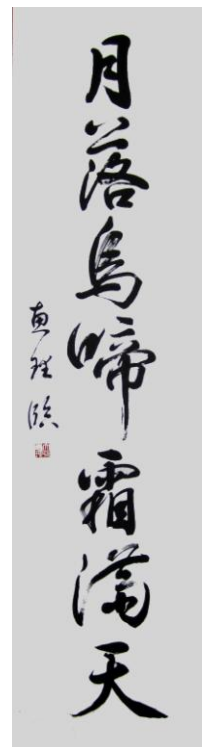 月落烏啼霜滿天